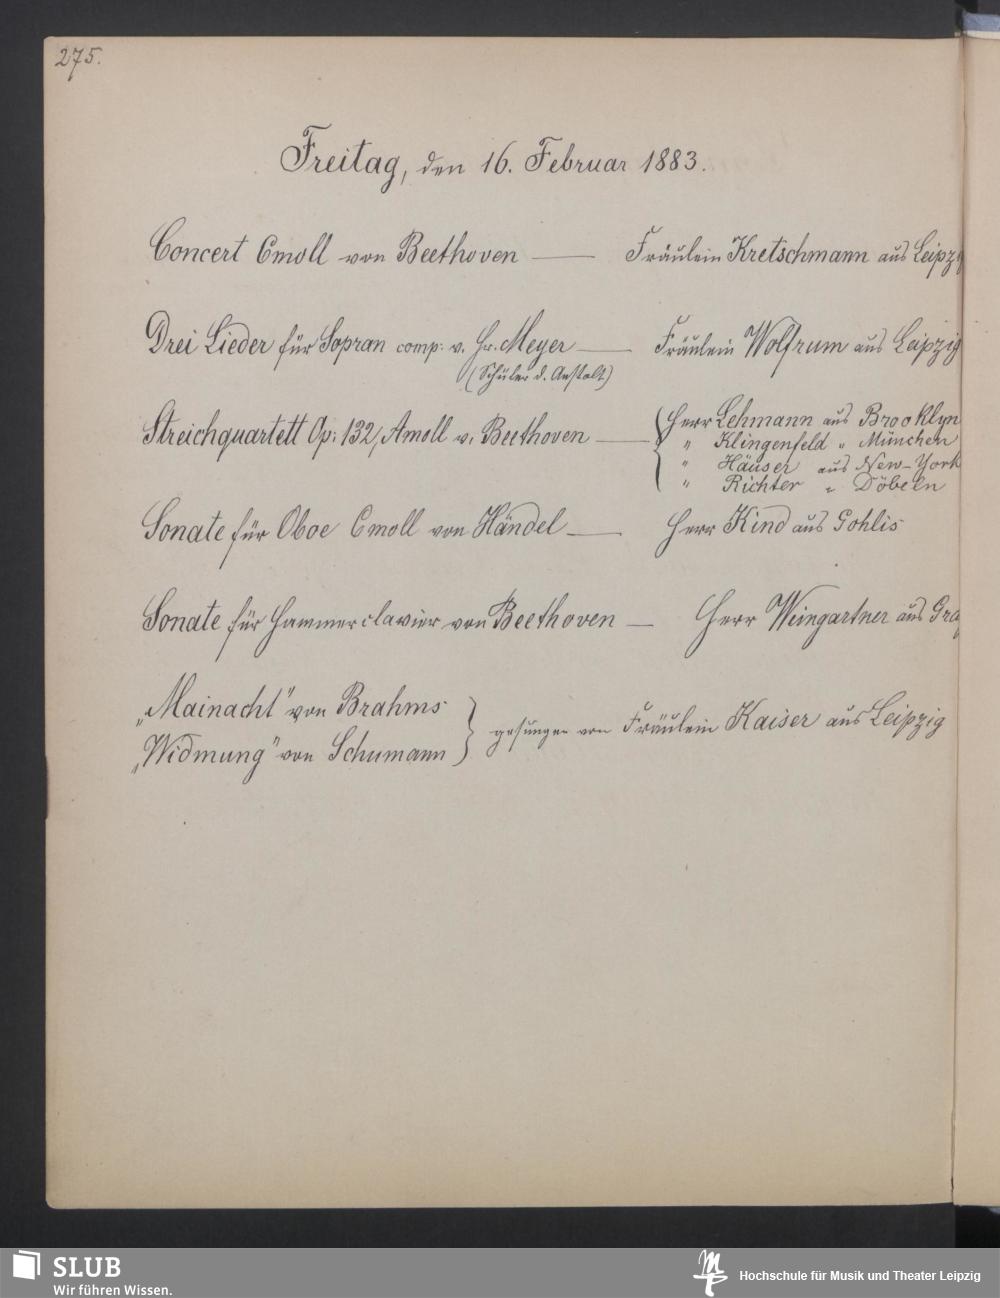 275.
Freitag, den 16. Februar 1883.
Concert Cmoll von Beethoven — Fräulein Kretschmann aus Leipzi
Drei Lieder für Sopran comp. v. Hr. Meyer — Fräulein Wolfrum aus Leipzig
(Schüler d. Anstalt)
Streichquartett Op. 132, Amoll v. Beethoven — Herr Lehmann aus Brooklyn
" Klingenfeld " München
" Häuser aus New-York
" Richter " Döbeln
Sonate für Oboe Cmoll von Händel — Herr Kind aus Gohlis
Sonate für Hammerclavier von Beethoven — Herr Weingartner aus Gra
„Mainacht" von Brahms
„Widmung" von Schumann } gesungen von Fräulein Kaiser aus Leipzig
SLUB
Wir führen Wissen.
Hochschule für Musik und Theater Leipzig